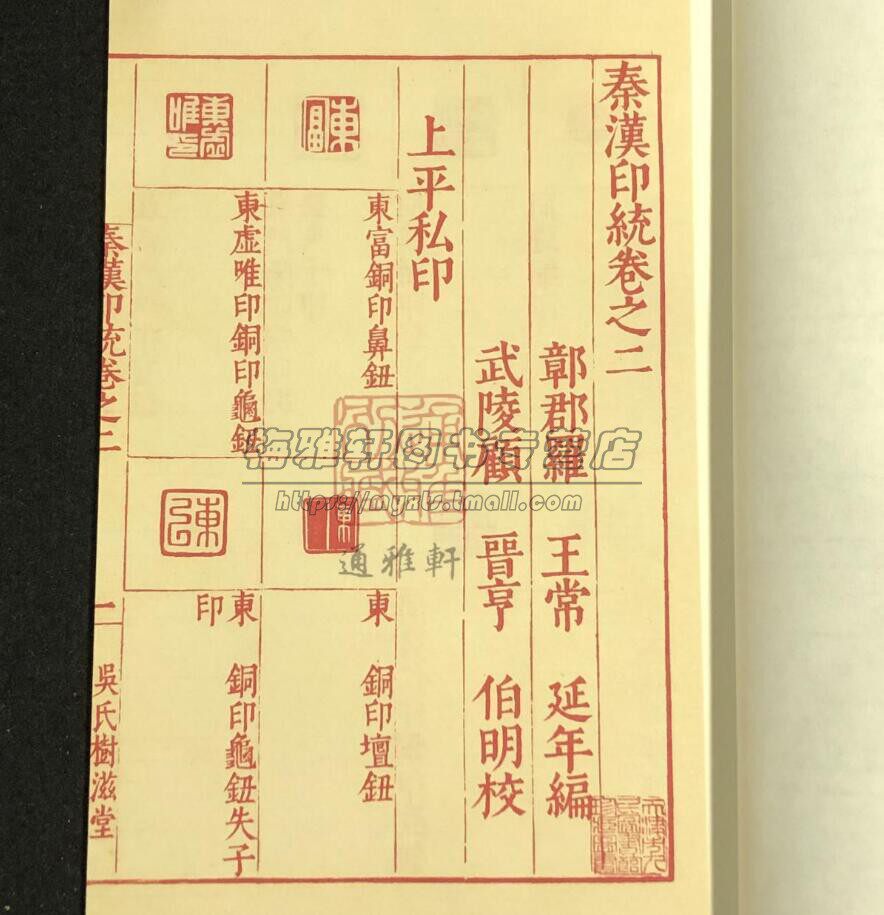 秦漢印統卷之二
鄣郡羅 王常 延年編
武陵顧 晋亨 伯明校
上平私印
東富銅印鼻鈕
東虛唯印銅印龜鈕
東 銅印壇鈕
東 銅印龜鈕失子
印
秦漢印統卷之二
二
吳氏樹滋堂
雅軒图书专营店
https://myxts.tmall.com
通雅軒